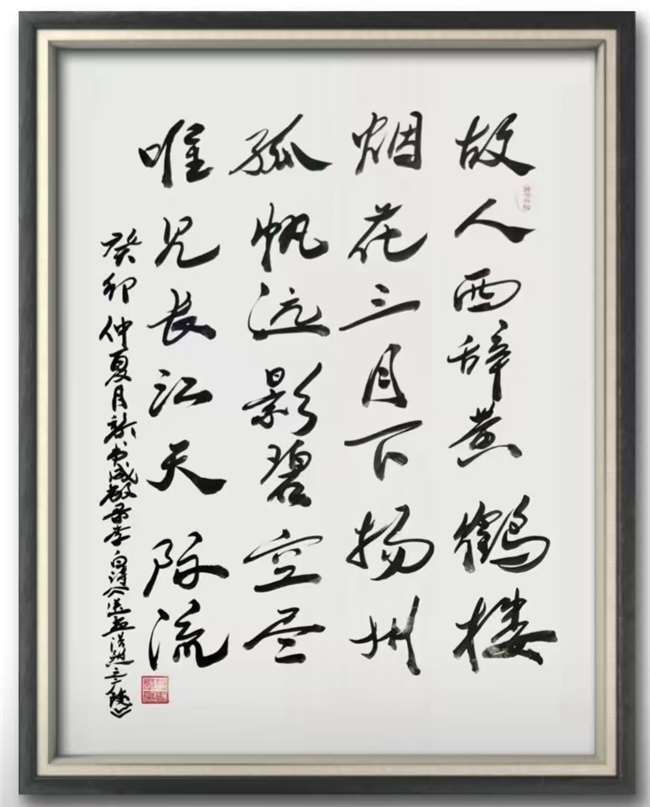 故人西辞黄鹤楼
烟花三月下扬州
孤帆远影碧空尽
唯见长江天际流
癸卯仲夏月 李白诗《送孟浩然之广陵》